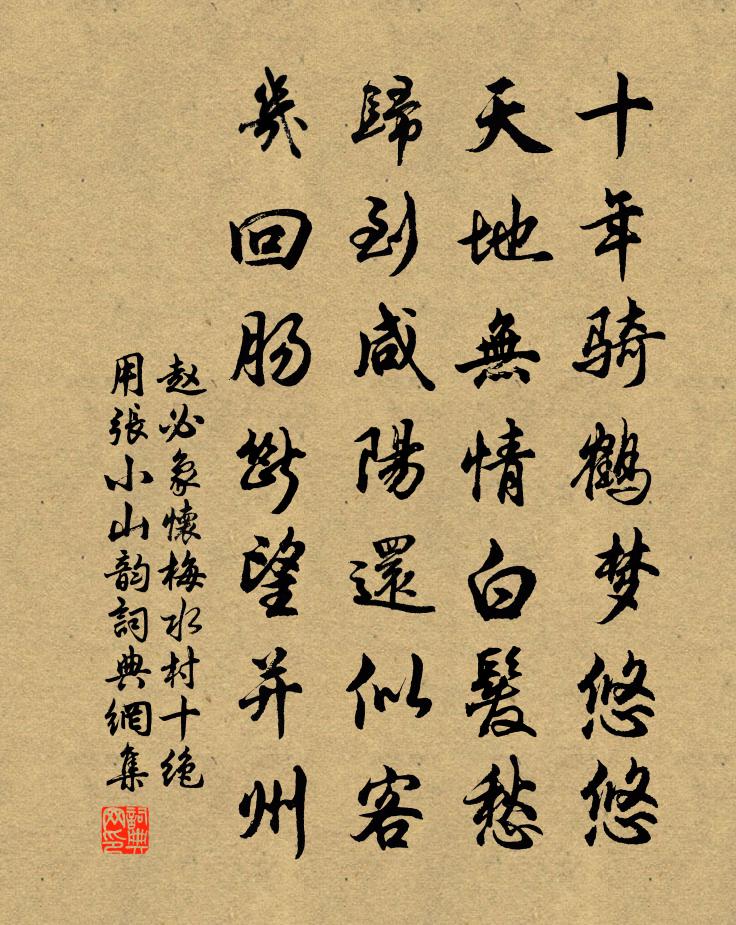 十年骑鹤梦悠悠
天地無情白髮愁
歸到咸陽還似客
幾回肠斷望并州
赵必象懷梅水村十绝
用張小山韵詞典網集
詞典
网印